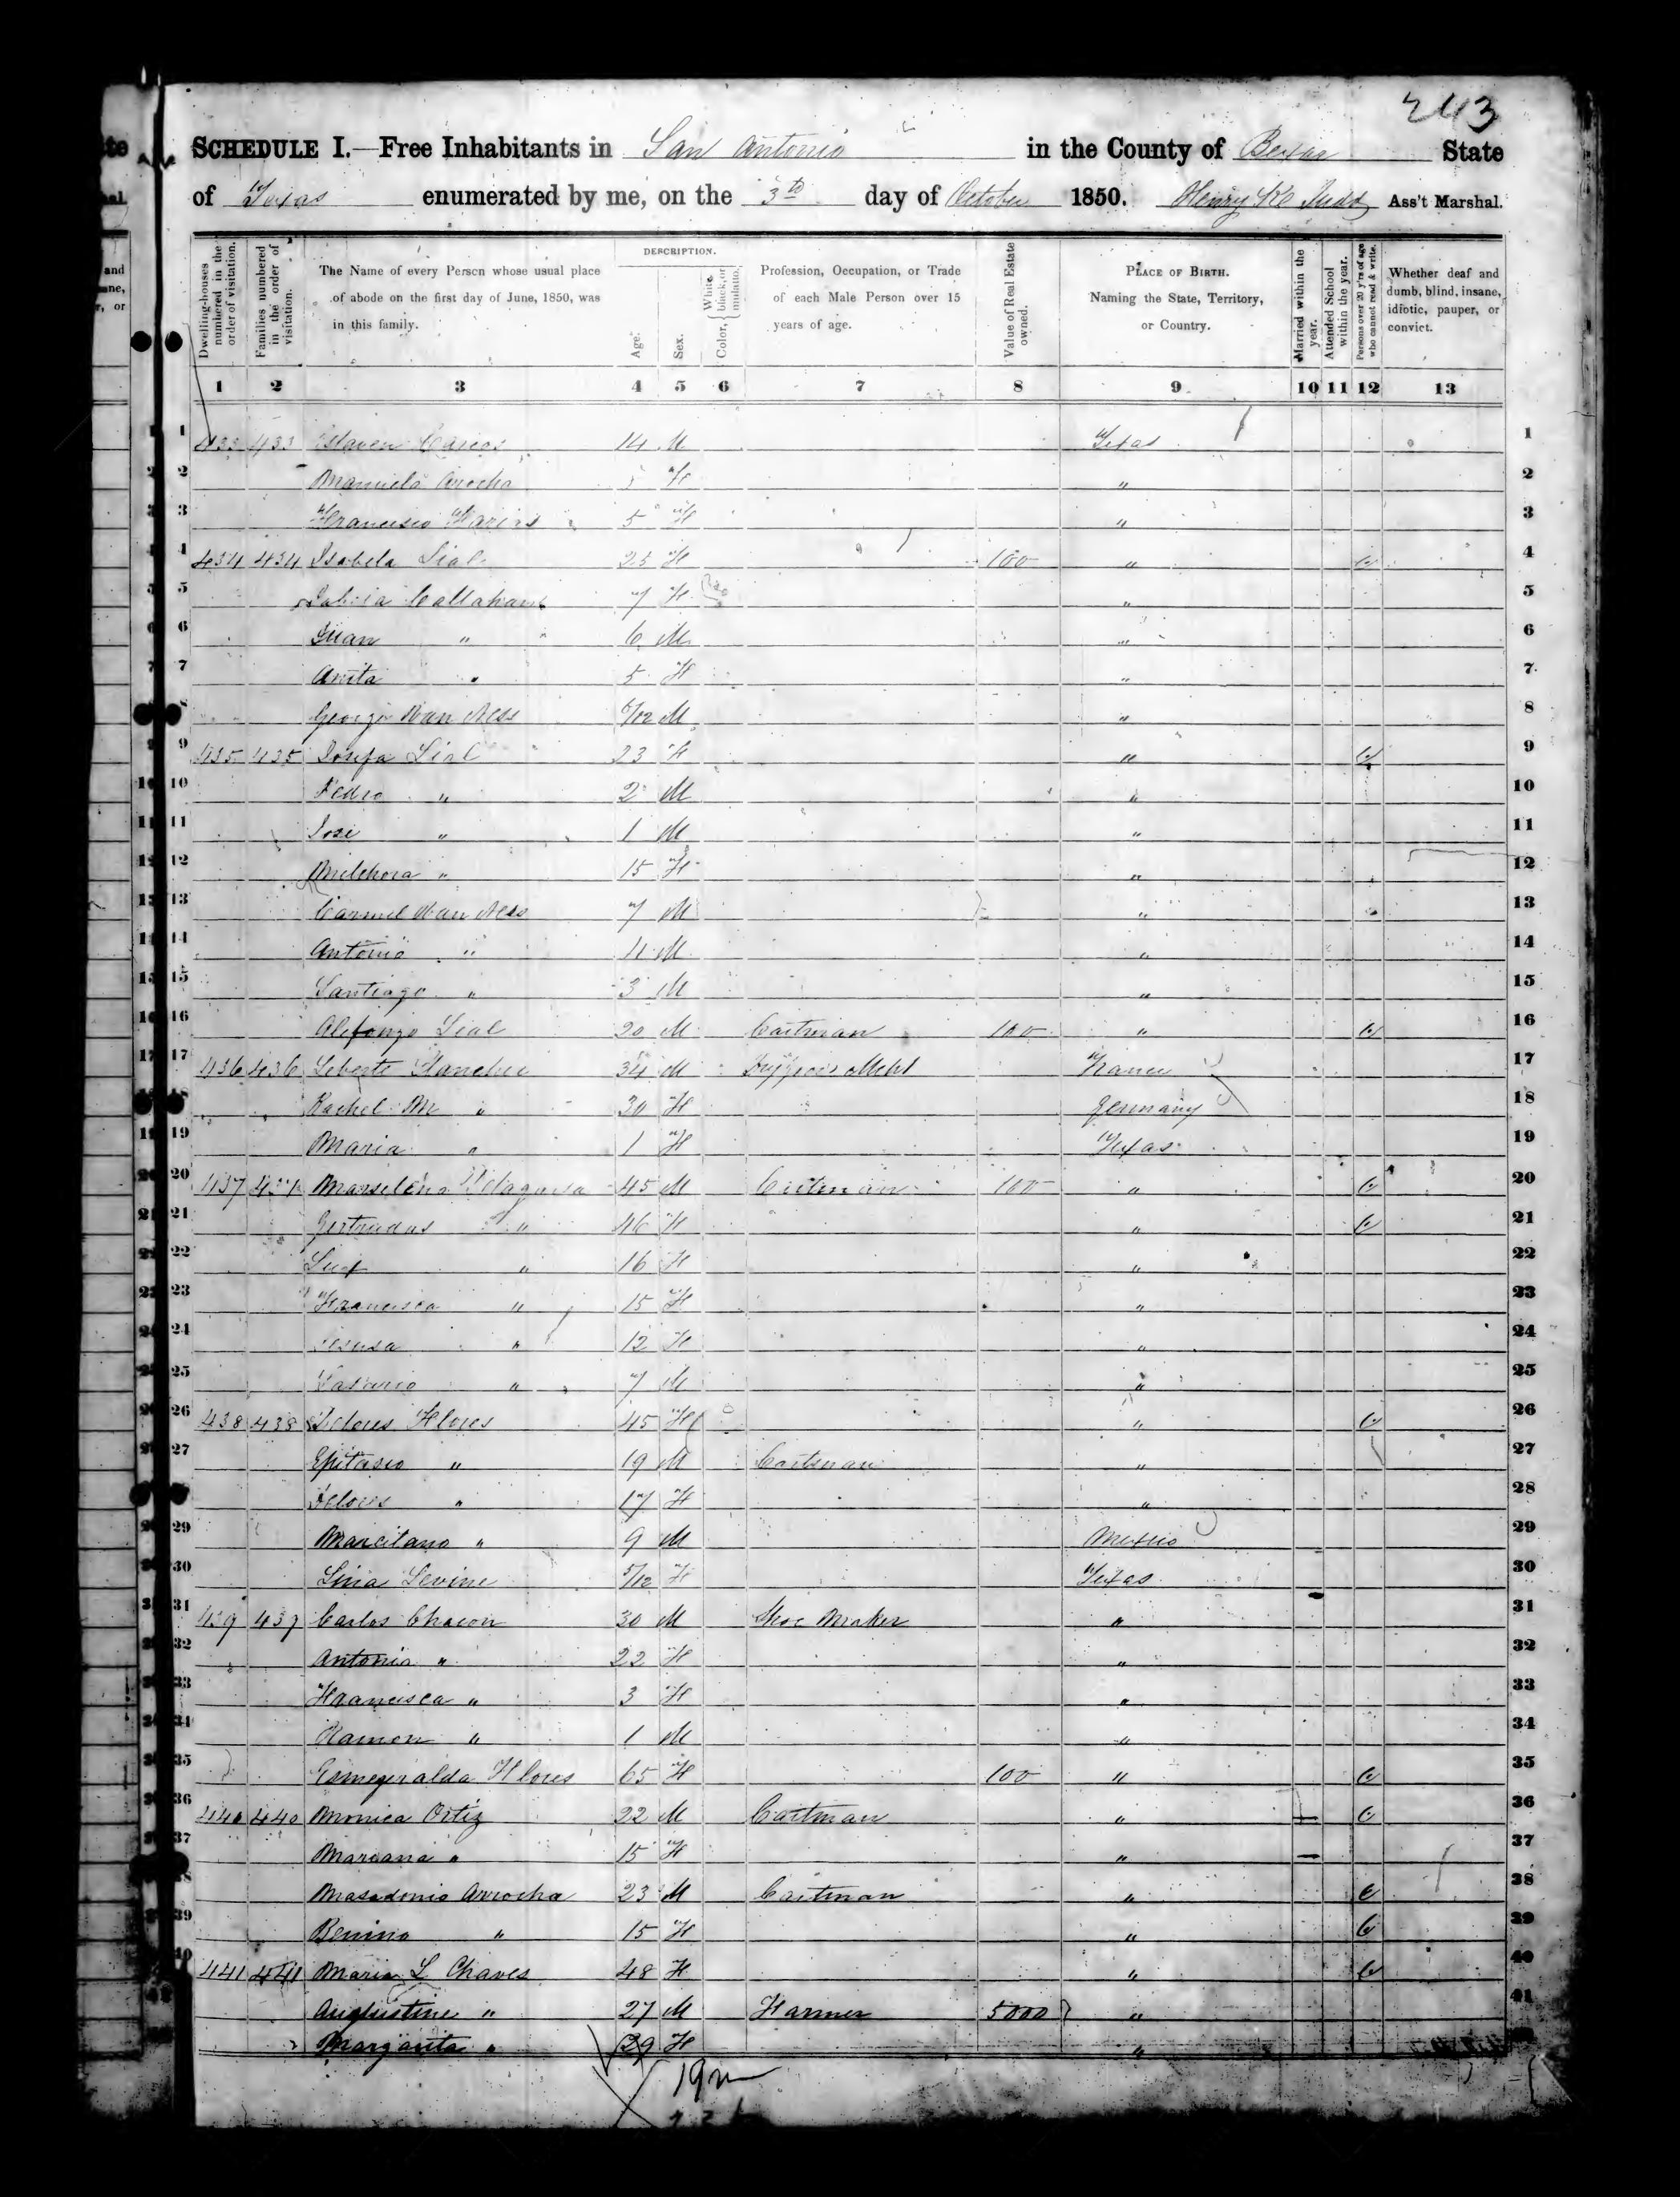 243
SCHEDULE I.—Free Inhabitants in San Antonio in the County of Bexar State
of Texas enumerated by me, on the 3th day of October 1850. Henry K Judd Ass't Marshal.
Dwelling-houses numbered in the order of visitation.
Families numbered in the order of visitation.
The Name of every Person whose usual place of abode on the first day of June, 1850, was in this family.
DESCRIPTION.
Age.
Sex.
Color, White, black, or mulatto.
Profession, Occupation, or Trade of each Male Person over 15 years of age.
Value of Real Estate owned.
PLACE OF BIRTH. Naming the State, Territory, or Country.
Married within the year.
Attended School within the year.
Persons over 20 y'rs of age who cannot read & write.
Whether deaf and dumb, blind, insane, idiotic, pauper, or convict.
1 2 3 4 5 6 7 8 9 10 11 12 13
1 433 433 14 M Texas 1
2 Manuela Arocha F " 2
3 Francisco Farias 5 F " 3
4 434 434 Isabela Lial 25 F 100 " 4
5 Callahan 7 F " 5
6 Juan " 6 M " 6
7 Anita " 5 F " 7
8 George Van Ness 6/12 M " 8
9 435 435 Josefa Lial 23 F " 9
10 Pedro " 2 M " 10
11 Jose " 1 M " 11
12 Milchora " 15 F " 12
13 Carmel Van Ness 7 M " 13
14 Antonio " 4 M " 14
15 Santiago " 3 M " 15
16 Alefonzo Lial 20 M Cartman 100 " 16
17 436 436 34 M France 17
18 Rachel M " 30 F Germany 18
19 Maria " 1 F Texas 19
20 437 437 Marselino 45 M Cartman 100 " 20
21 Gertrudas " 46 F " 21
22 Luz " 16 F " 22
23 Francisca " 15 F " 23
24 Jesusa " 12 F " 24
25 " 7 M " 25
26 438 438 Dolores Flores 45 F " 26
27 Epitasio " 19 M Cartman " 27
28 Delores " 17 F " 28
29 Marcilano " 9 M Mexico 29
30 Lina Levine 5/12 F Texas 30
31 439 439 Carlos Chacon 30 M Shoe Maker " 31
32 Antonia " 22 F " 32
33 Francisca " 3 F " 33
34 Ramon " 1 M " 34
35 Esmegeralda Flores 65 F 100 " 35
36 440 440 Monica Ortiz 22 M Cartman " 36
37 Mariana " 15 F " 37
38 Masadonio Arrocha 23 M Cartman " 38
39 Benino " 15 F " 39
40 441 441 Maria L Chaves 48 F " 40
41 Augustine " 27 M Farmer 5000 " 41
Margarita " 29 F "
19m